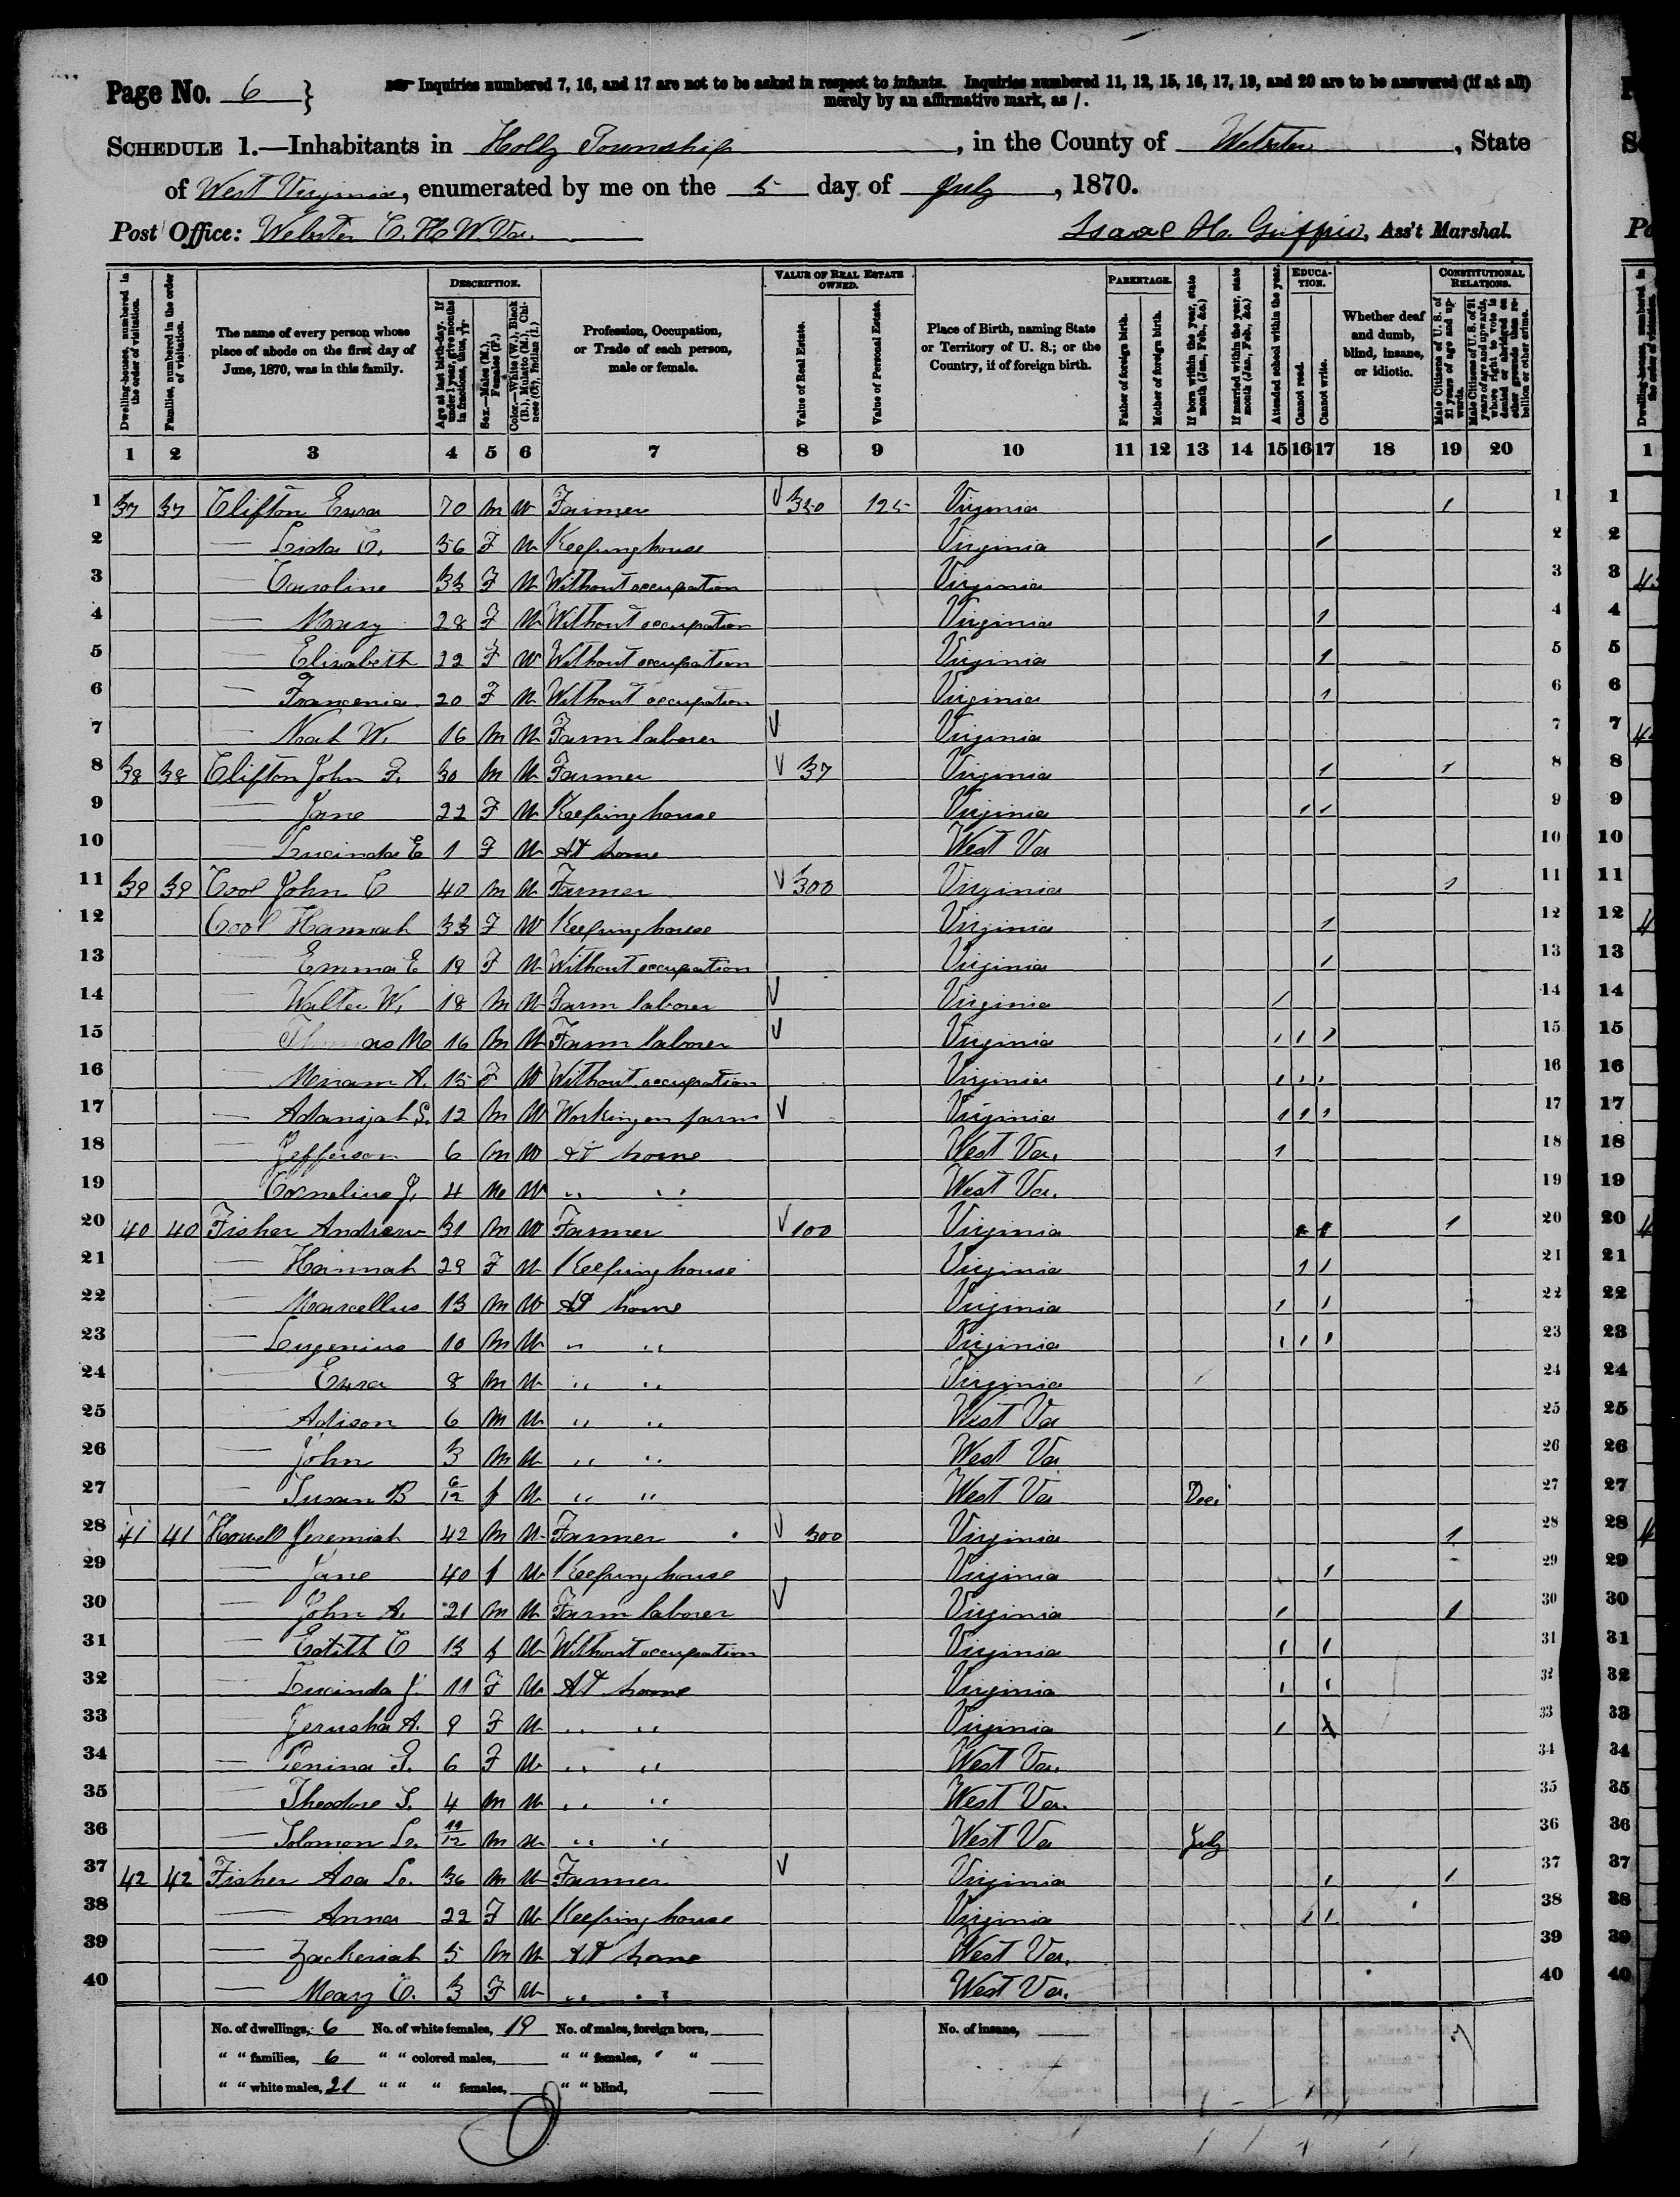 Page No. 6 }
Inquiries numbered 7, 16, and 17 are not to be asked in respect to infants. Inquiries numbered 11, 12, 15, 16, 17, 19, and 20 are to be answered (if at all) merely by an affirmative mark, as /.
SCHEDULE 1.—Inhabitants in Holly Township, in the County of Webster, State
of West Virginia, enumerated by me on the 5 day of July, 1870.
Post Office: Webster C. H. W. Va.
Isaac H. Griffin, Ass't Marshal.
Dwelling-houses, numbered in the order of visitation.
Families, numbered in the order of visitation.
The name of every person whose place of abode on the first day of June, 1870, was in this family.
DESCRIPTION.
Age at last birth-day. If under 1 year, give months in fractions, thus, 3/12.
Sex.—Males (M.), Females (F.)
Color.—White (W.), Black (B.), Mulatto (M.), Chinese (C.), Indian (I.)
Profession, Occupation, or Trade of each person, male or female.
VALUE OF REAL ESTATE OWNED.
Value of Real Estate.
Value of Personal Estate.
Place of Birth, naming State or Territory of U. S.; or the Country, if of foreign birth.
PARENTAGE.
Father of foreign birth.
Mother of foreign birth.
If born within the year, state month (Jan., Feb., &c.)
If married within the year, state month (Jan., Feb., &c.)
Attended school within the year.
EDUCATION.
Cannot read.
Cannot write.
Whether deaf and dumb, blind, insane, or idiotic.
CONSTITUTIONAL RELATIONS.
Male Citizens of U. S. of 21 years of age and upwards.
Male Citizens of U. S. of 21 years of age and upwards, whose right to vote is denied or abridged on other grounds than rebellion or other crime.
1 2 3 4 5 6 7 8 9 10 11 12 13 14 15 16 17 18 19 20
1 37 37 Clifton Ezra 70 M W Farmer V 350 125 Virginia 1 1
2 — Lida C. 56 F W Keeping house Virginia 1 2
3 — Caroline 33 F W Without occupation Virginia 3
4 — Mary 28 F W Without occupation Virginia 1 4
5 — Elizabeth 22 F W Without occupation Virginia 1 5
6 — Francenia 20 F W Without occupation Virginia 1 6
7 — Noah W. 16 M W Farm laborer V Virginia 7
8 38 38 Clifton John F. 30 M W Farmer V 37 Virginia 1 1 8
9 — Jane 22 F W Keeping house Virginia 1 1 9
10 — Lucinda E 1 F W At home West Va 10
11 39 39 Cool John C 40 M W Farmer V 300 Virginia 1 11
12 Cool Hannah 33 F W Keeping house Virginia 1 12
13 — Emma E 19 F W Without occupation Virginia 1 13
14 — Walter W. 18 M W Farm laborer V Virginia / 14
15 — Thomas M 16 M W Farm laborer V Virginia 1 1 1 15
16 — Meriam A. 15 F W Without occupation Virginia 1 1 1 16
17 — Adanijah S. 12 M W Working on farm V Virginia 1 1 1 17
18 — Jefferson 6 M W At home West Va. 1 18
19 Cornelius J. 4 M W " " West Va. 19
20 40 40 Fisher Andrew 31 M W Farmer V 100 Virginia 1 1 1 20
21 — Hannah 29 F W Keeping house Virginia 1 1 21
22 — Marcellus 13 M W At home Virginia 1 1 22
23 — Eugenius 10 M W " " Virginia 1 1 1 23
24 — Ezra 8 M W " " Virginia 24
25 — Adison 6 M W " " West Va 25
26 — John 3 M W " " West Va 26
27 — Susan B 6/12 f W " " West Va Dec. 27
28 41 41 Howell Jeremiah 42 M W Farmer V 300 Virginia 1 28
29 — Jane 40 f W Keeping house Virginia 1 29
30 — John A. 21 M W Farm laborer V Virginia 1 1 30
31 — Edith C 13 f W Without occupation Virginia 1 1 31
32 — Lucinda J. 11 F W At home Virginia 1 1 32
33 — Jerusha A. 9 F W " " Virginia 1 X 33
34 — Penina 6 F W " " West Va. 34
35 — Theodore S. 4 M W " " West Va. 35
36 — Solomon L. 11/12 M W " " West Va July 36
37 42 42 Fisher Asa L. 36 M W Farmer V Virginia 1 1 37
38 — Anna 22 F W Keeping house Virginia 1 1 38
39 — Zackeriah 5 M W At home West Va. 39
40 — Mary C. 3 F W " " West Va. 40
No. of dwellings, 6 No. of white females, 19 No. of males, foreign born, No. of insane, 7
" " families, 6 " " colored males, " " females, " "
" " white males, 21 " " " females, " " blind,